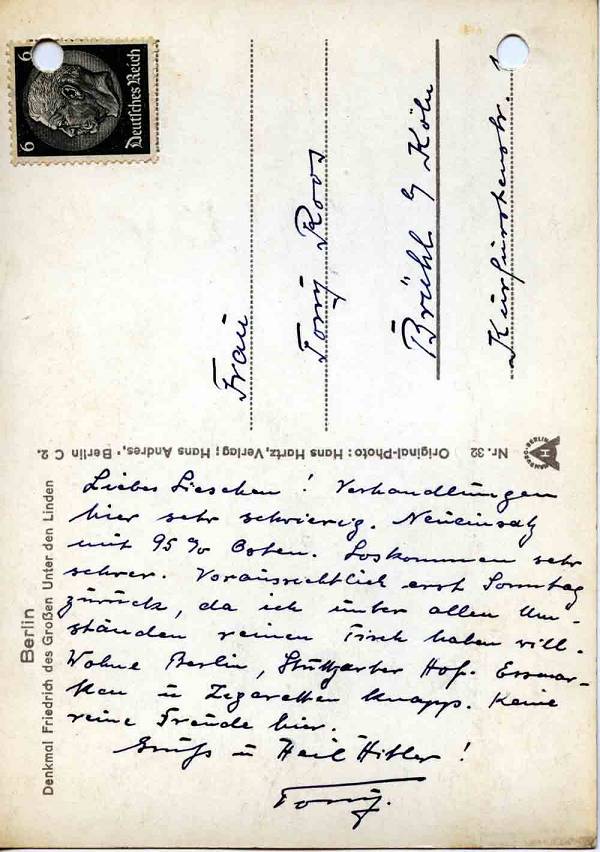 6 6
Deutsches Reich
Frau
Tony Roos
Brühl b/ Köln
Kurfürstenstr. 1
Nr. 32 Original-Photo: Hans Hartz, Verlag: Hans Andres, Berlin C 2.
HANDRO-BERLIN
H
Berlin
Denkmal Friedrich des Großen Unter den Linden
Liebes Lieschen! Verhandlungen
hier sehr schwierig. Neueinsatz
mit 95 % Osten. Loskommen sehr
schwer. Voraussichtlich erst Sonntag
zurück, da ich unter allen Um-
ständen reinen Tisch haben will.
Wohne Berlin, Stuttgarter Hof. Essmar-
ken u Zigaretten knapp. Keine
reine Freude hier.
Gruß u Heil Hitler!
Tony.